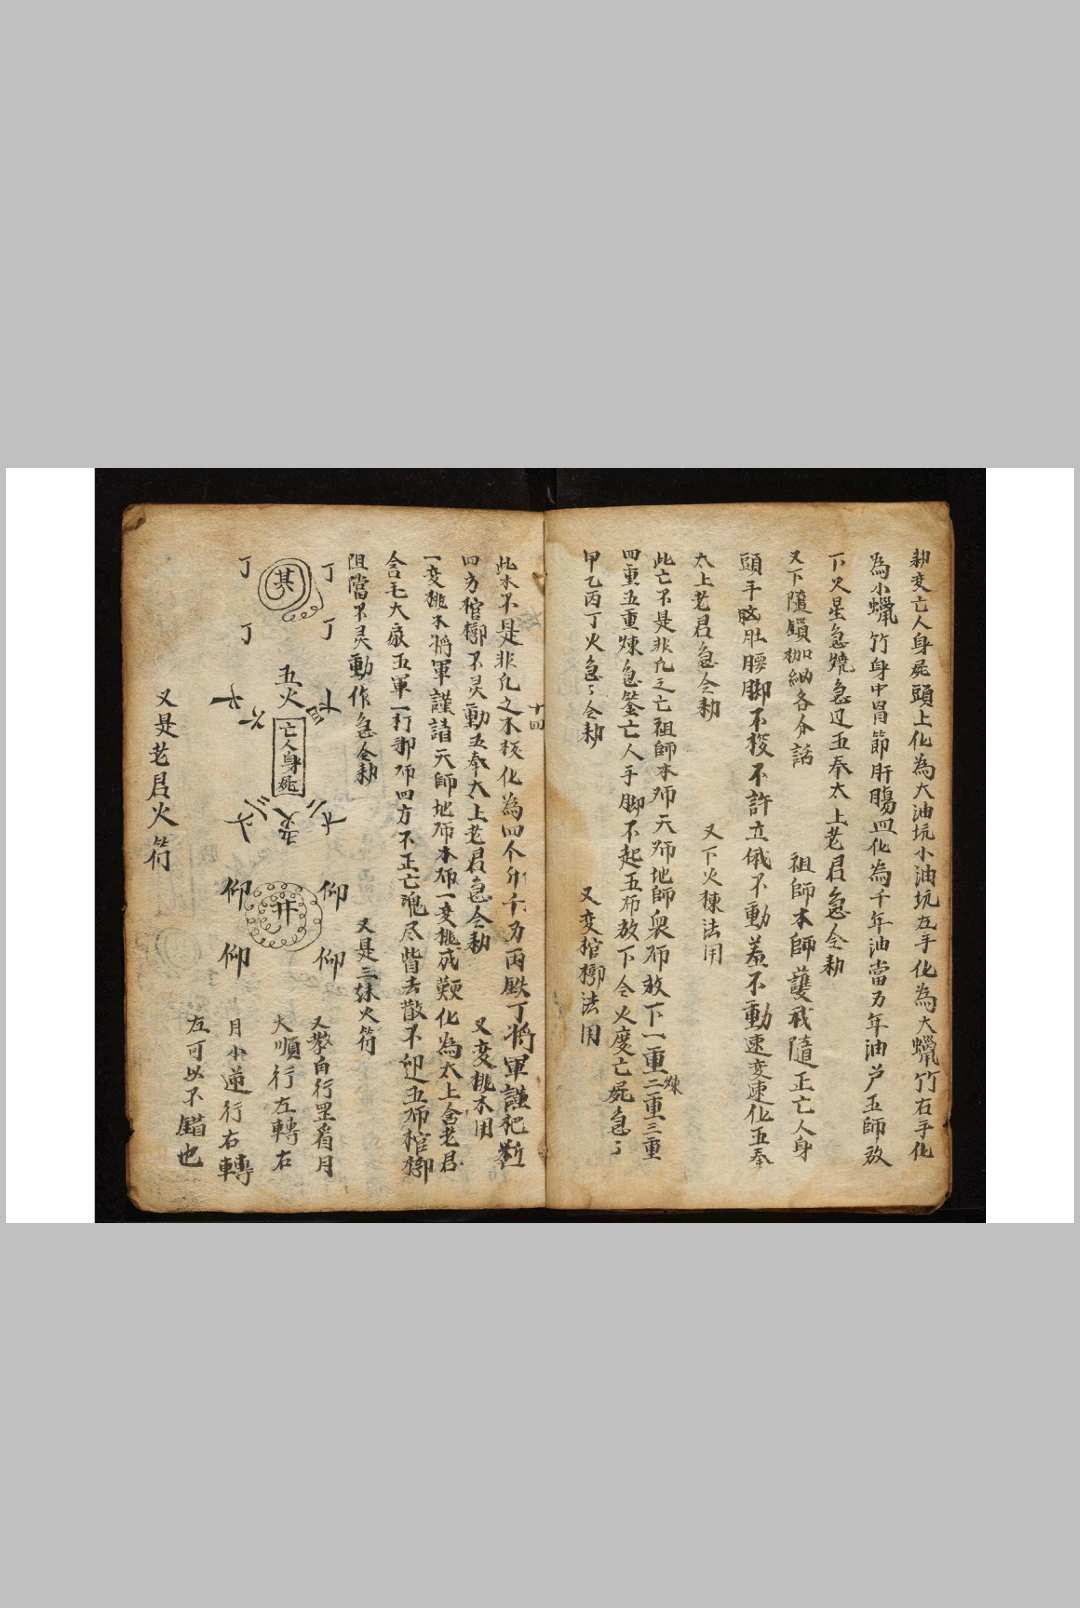 勅変亡人身屍頭上化為大油坑小油坑左手化為大蠟竹右手化
為小蠟竹身中胃節肝腸皿化為千年油當万年油芦五師放
下火星急燒急过五奉太上老君急令勅
又下隨鎖枷納各分話 祖師本師護我隨正亡人身
頭手肚腰脚不授不許立俄不動羞不動速变速化五奉
太上老君急令勅 又下火煉法用
此亡不是非凡之亡祖師本师天师地師衆师放下一重二重三重
煉
四重五重煉急釜亡人手脚不起五师放下令火度亡屍急〻
甲乙丙丁火急〻令勅 又変棺槨法用
十四
此木不是非凡之木板化為四个千万丙默丁將軍謹杞
四方棺槨不灵動五奉太上老君急令勅 又変桃木用
一変桃木將軍謹請天師地师本师一変桃成化為太上合老君
合毛大五軍一打鄣师四方不正亡魂尽皆去散不迎五师棺槨
阻當不灵動作急令勅 又是三妹火符
丁 其 丁
丁 丁
五火
亡人身死
仰 井 仰
仰 仰
又教白行罡看月
大順行左轉右
月小逆行右轉
左可以不錯也
又是老君火符